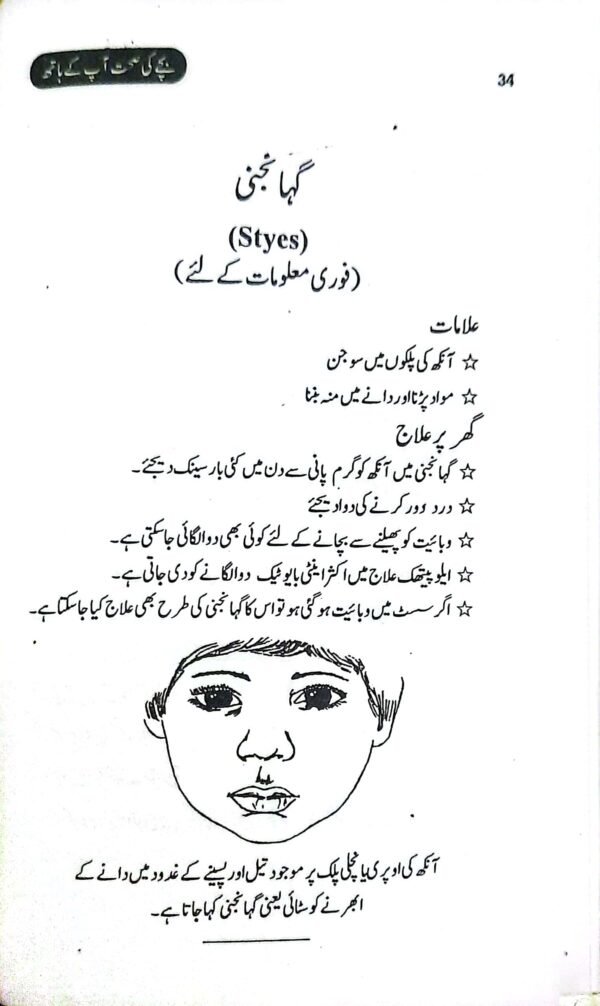 بچے کی صحت آپ کے ہاتھ
34
گہانجنی
(Styes)
(فوری معلومات کے لئے)
علامات
☆ آنکھ کی پلکوں میں سوجن
☆ مواد پڑنا اور دانے میں منہ بننا
گھر پر علاج
☆ گہانجنی میں آنکھ کو گرم پانی سے دن میں کئی بار سینک دیجئے۔
☆ درد دور کرنے کی دوا دیجئے
☆ وبائیت کو پھیلنے سے بچانے کے لئے کوئی بھی دوا لگائی جاسکتی ہے۔
☆ ایلوپیتھک علاج میں اکثر اینٹی بایوٹیک دوا لگانے کو دی جاتی ہے۔
☆ اگر سسٹ میں وبائیت ہوگئی ہو تو اس کا گہانجنی کی طرح بھی علاج کیا جاسکتا ہے۔
آنکھ کی اوپری یا نچلی پلک پر موجود تیل اور پسینے کے غدود میں دانے کے
ابھرنے کو سٹائی یعنی گہانجنی کہا جاتا ہے۔